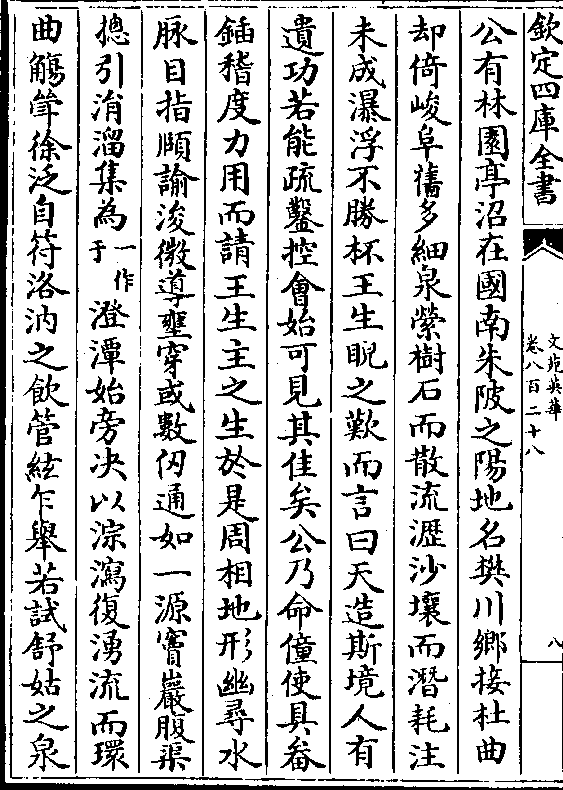 欽定四庫全書
文苑英華
卷八百二十八
八
公有林園亭沼在國南朱陂之陽地名樊川鄉接杜曲
却倚峻阜舊多細泉縈樹石而散流瀝沙壤而潛耗注
未成瀑浮不勝杯王生睨之歎而言曰天造斯境人有
遺功若能疏鑿控會始可見其佳矣公乃命僮使具畚
鍤稽度力用而請王生主之生於是周相地形幽尋水
脉目指頤諭浚微導壅穿或數仭通如一源竇巖腹渠
揔引涓溜集為一作于澄潭始旁决以淙瀉復湧流而環
曲觴斝徐泛自符洛汭之飲管絃乍舉若試舒姑之泉